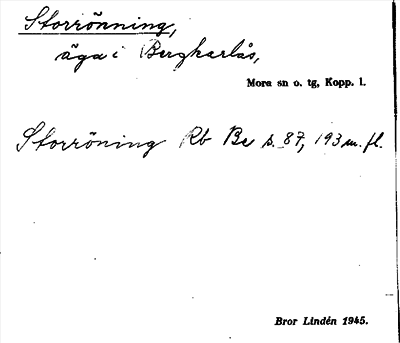 Storrönning,
äga i Bergkarlås,
Mora sn o. tg, Kopp. l.
Storröning Rb Be s. 87, 193 m. fl.
Bror Lindén 1945.